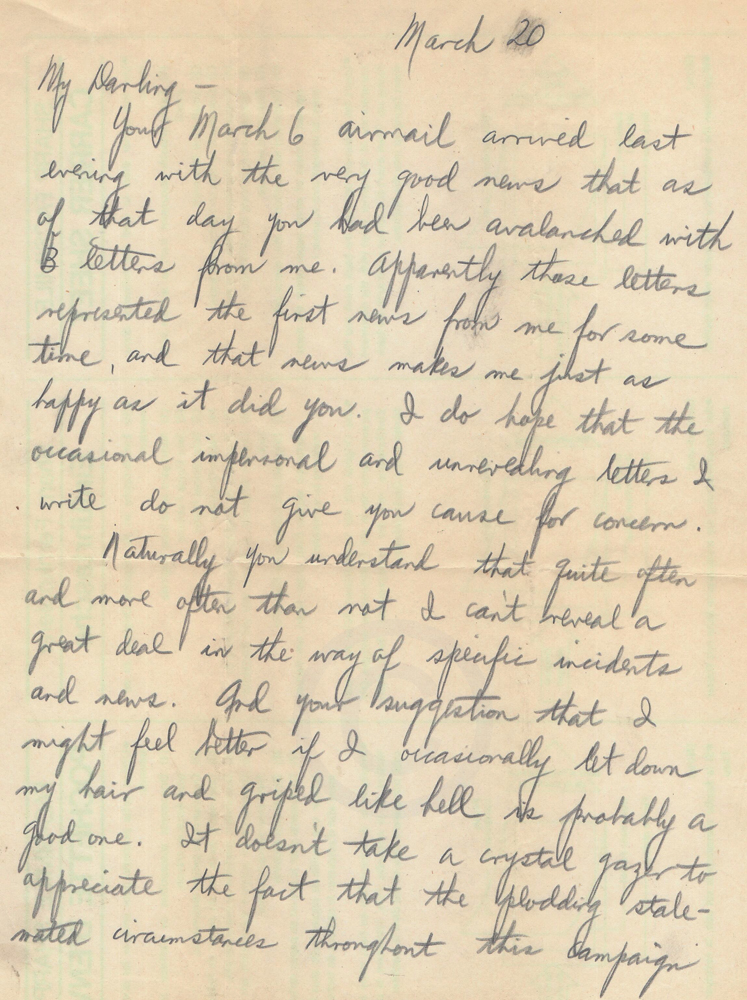 March 20
My Darling —
Your March 6 airmail arrived last
evening with the very good news that as
of that day you had been avalanched with
3 letters from me. Apparently those letters
represented the first news from me for some
time, and that news makes me just as
happy as it did you. I do hope that the
occasional impersonal and unrevealing letters I
write do not give you cause for concern.
Naturally you understand that quite often
and more often than not I can't reveal a
great deal in the way of specific incidents
and news. And your suggestion that I
might feel better if I occasionally let down
my hair and griped like hell is probably a
good one. It doesn't take a crystal gazer to
appreciate the fact that the plodding stale-
mated circumstances throughout this campaign